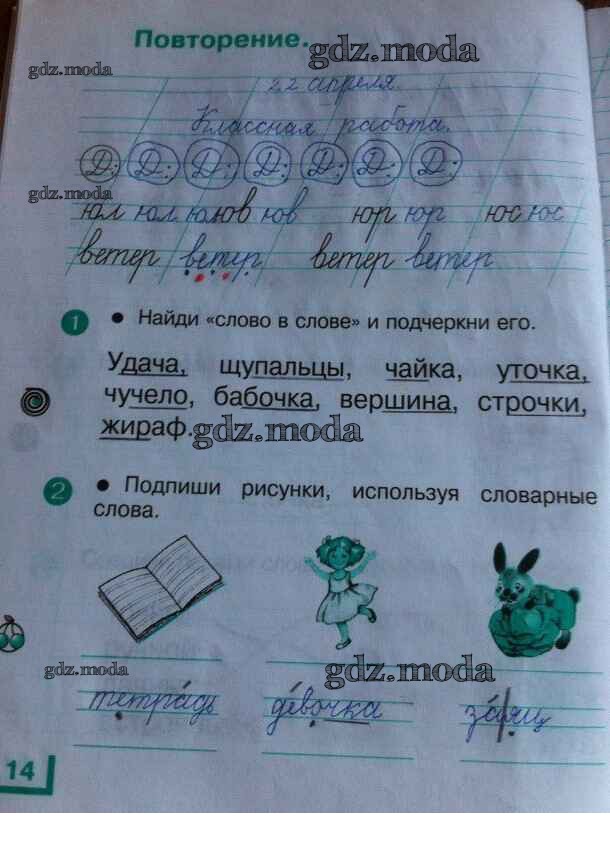 Повторение.
gdz.moda
gdz.moda
22 апреля.
Классная работа.
Д; Д; Д; Д; Д; Д; Д;
gdz.moda
юл юл юл юв юв юр юр юс юс
ветер ветер ветер ветер
1 • Найди «слово в слове» и подчеркни его.
Удача, щупальцы, чайка, уточка,
чучело, бабочка, вершина, строчки,
жираф.
gdz.moda
2 • Подпиши рисунки, используя словарные
слова.
gdz.moda
gdz.moda
тетрадь девочка заяц
14